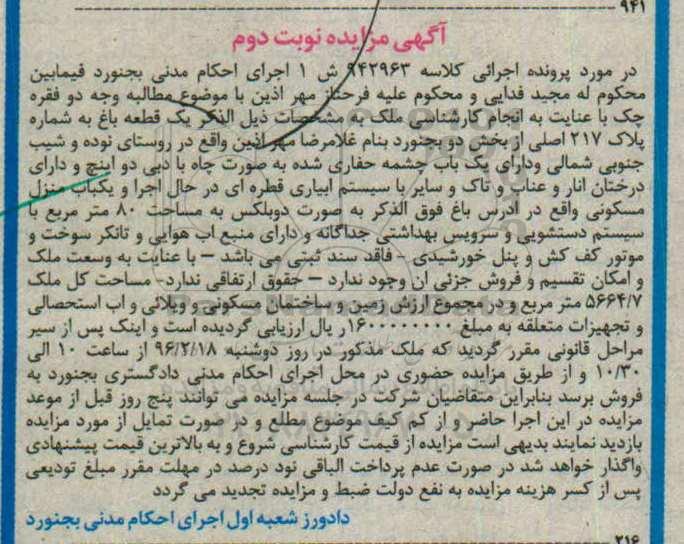 ۹۴۱
آگهی مزایده نوبت دوم
در مورد پرونده اجرائی کلاسه ۹۴۲۹۶۳ ش ۱ اجرای احکام مدنی بجنورد فیمابین
محکوم له مجید فدایی و محکوم علیه فرحناز مهر اذین با موضوع مطالبه وجه دو فقره
چک با عنایت به انجام کارشناسی ملک به مشخصات ذیل الذکر یک قطعه باغ به شماره
پلاک ۲۱۷ اصلی از بخش دو بجنورد بنام غلامرضا مهر اذین واقع در روستای نوده و شیب
جنوبی شمالی ودارای یک باب چشمه حفاری شده به صورت چاه با دبی دو اینچ و دارای
درختان انار و عناب و تاک و سایر با سیستم ابیاری قطره ای در حال اجرا و یکباب منزل
مسکونی واقع در ادرس باغ فوق الذکر به صورت دوبلکس به مساحت ۸۰ متر مربع با
سیستم دستشویی و سرویس بهداشتی جداگانه و دارای منبع اب هوایی و تانکر سوخت و
موتور کف کش و پنل خورشیدی - فاقد سند ثبتی می باشد – با عنایت به وسعت ملک
و امکان تقسیم و فروش جزئی ان وجود ندارد – حقوق ارتفاقی ندارد- مساحت کل ملک
۵۶۶۴/۷ متر مربع و در مجموع ارزش زمین و ساختمان مسکونی و ویلائی و اب استحصالی
و تجهیزات متعلقه به مبلغ ۱۶۰۰۰۰۰۰۰۰ر یال ارزیابی گردیده است و اینک پس از سیر
مراحل قانونی مقرر گردید که ملک مذکور در روز دوشنبه ۹۶/۲/۱۸ از ساعت ۱۰ الی
۱۰/۳۰ و از طریق مزایده حضوری در محل اجرای احکام مدنی دادگستری بجنورد به
فروش برسد بنابراین متقاضیان شرکت در جلسه مزایده می توانند پنج روز قبل از موعد
مزایده در این اجرا حاضر و از کم کیف موضوع مطلع و در صورت تمایل از مورد مزایده
بازدید نمایند بدیهی است مزایده از قیمت کارشناسی شروع و به بالاترین قیمت پیشنهادی
واگذار خواهد شد در صورت عدم پرداخت الباقی نود درصد در مهلت مقرر مبلغ تودیعی
پس از کسر هزینه مزایده به نفع دولت ضبط و مزایده تجدید می گردد
دادورز شعبه اول اجرای احکام مدنی بجنورد
۲۱۶